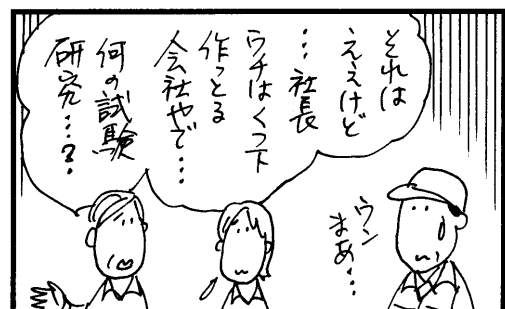 それは
ええけど
…社長
ウチはくつ下
作っとる
会社やで…
何の試験
研究…?
ウン
まあ…